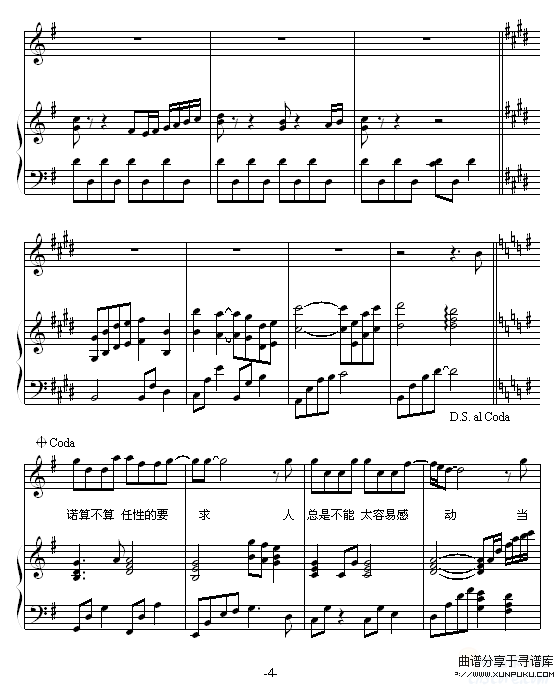 D.S. al Coda
Coda
诺算不算 任性的要 求 人 总是不能 太容易感 动 当
-4-
曲谱分享于寻谱库
WWW.XUNPUKU.COM